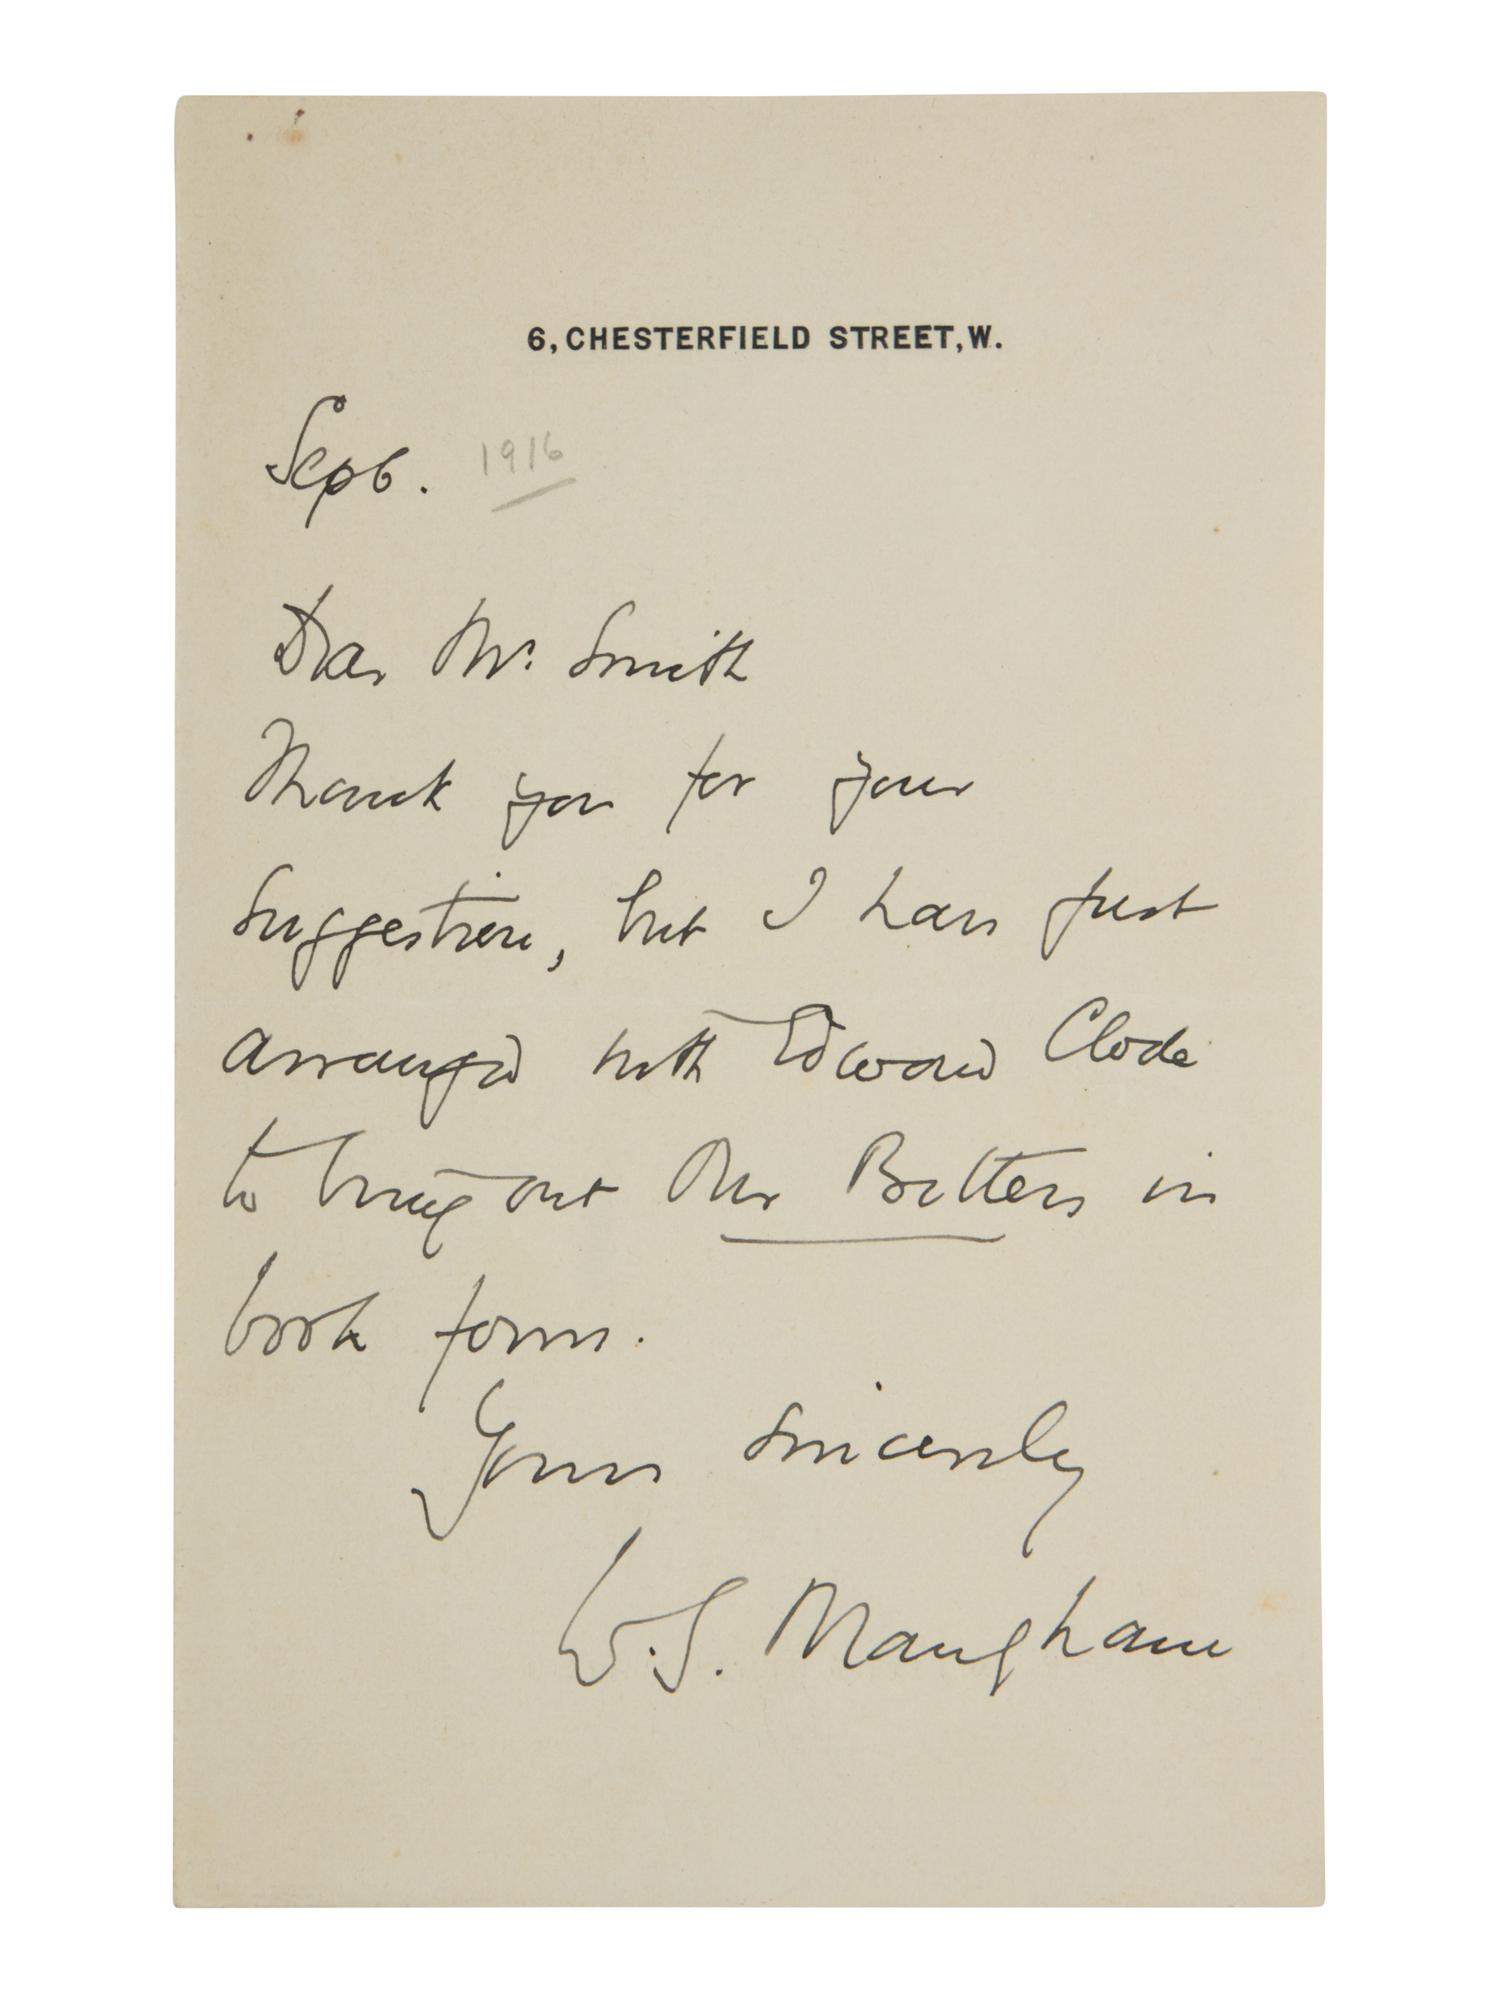 6, CHESTERFIELD STREET, W.
Sep 6. 1916
Dear Mr. Smith
Thank you for your
suggestion, but I have just
arranged with Edward Clode
to bring out Our Betters in
book form.
Yours sincerely
W.S. Maugham